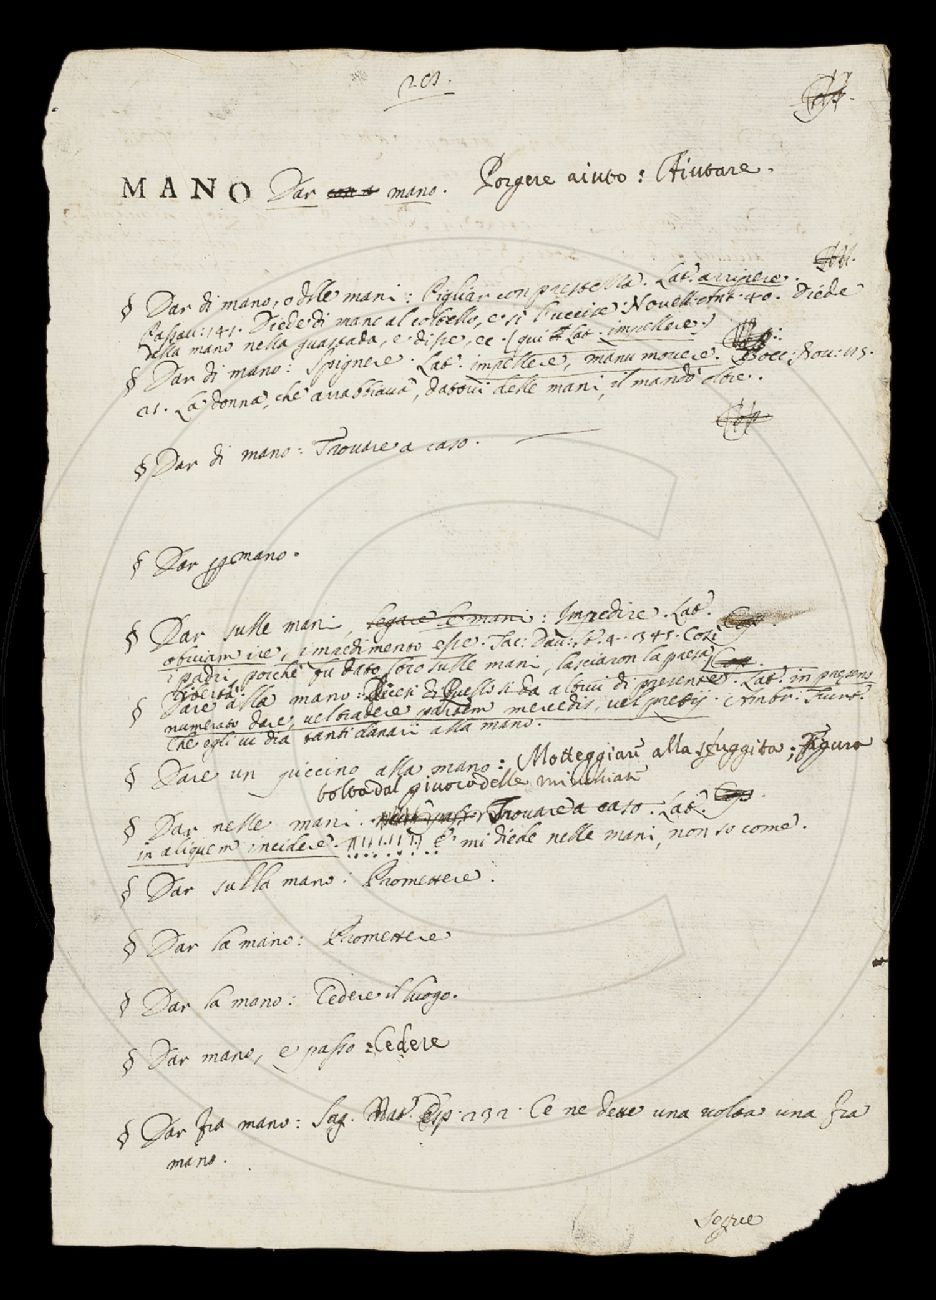 201.
MANO Dar mano. Porgere aiuto: Aiutare.
§ Dar di mano, o delle mani: Pigliar con prestezza. Lat. arripere.
Passau: 141. Diede di mano al coltello, e si l'uccise. Novell. Ant. 40. Diede
alla mano nella guastada, e disse, ec. (qui Lat. impellere)
§ Dar di mano: Spignere. Lat. impellere, manu movere. Bocc: Nov: 115.
21. La donna, che arrabbiava, datovi delle mani, il mandò oltre.
§ Dar di mano: Trovare a caso.
§ Dar mano.
§ Dar sulle mani legare le mani: Impedire. Lat.
obviam ire, impedimento esse. Tac: Dav: St. 4. 345. Così
i padri, perchè fu dato loro sulle mani, lasciaron la presa
libertà.
§ Dare alla mano: Dicesi di Quello si dà altrui di presente. Lat. in presens
numerato dare, vel tradere partem mercedis, vel pretij. Ambr. Furt.
Che egli vi dia tanti danari alla mano.
§ Dare un alla mano: Motteggiare alla sfuggita; Figura
tolta dal giuoco delle minchiate
§ Dar nelle mani. Trovare a caso. Lat.
in aliquem incidere. E' mi diede nelle mani, non so come.
§ Dar sulla mano: Promettere.
§ Dar la mano: Promettere
§ Dar la mano: Cedere il luogo.
§ Dar mano, e passo: Cedere
§ Dar fra mano: Sag. Nat. Esp. 232. Ce ne dette una volta una fra
mano.
segue